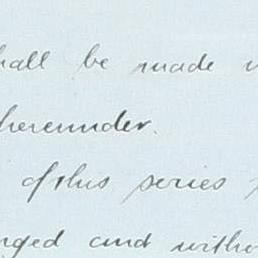 hall be made
hereunder.
of this series
nged and witho